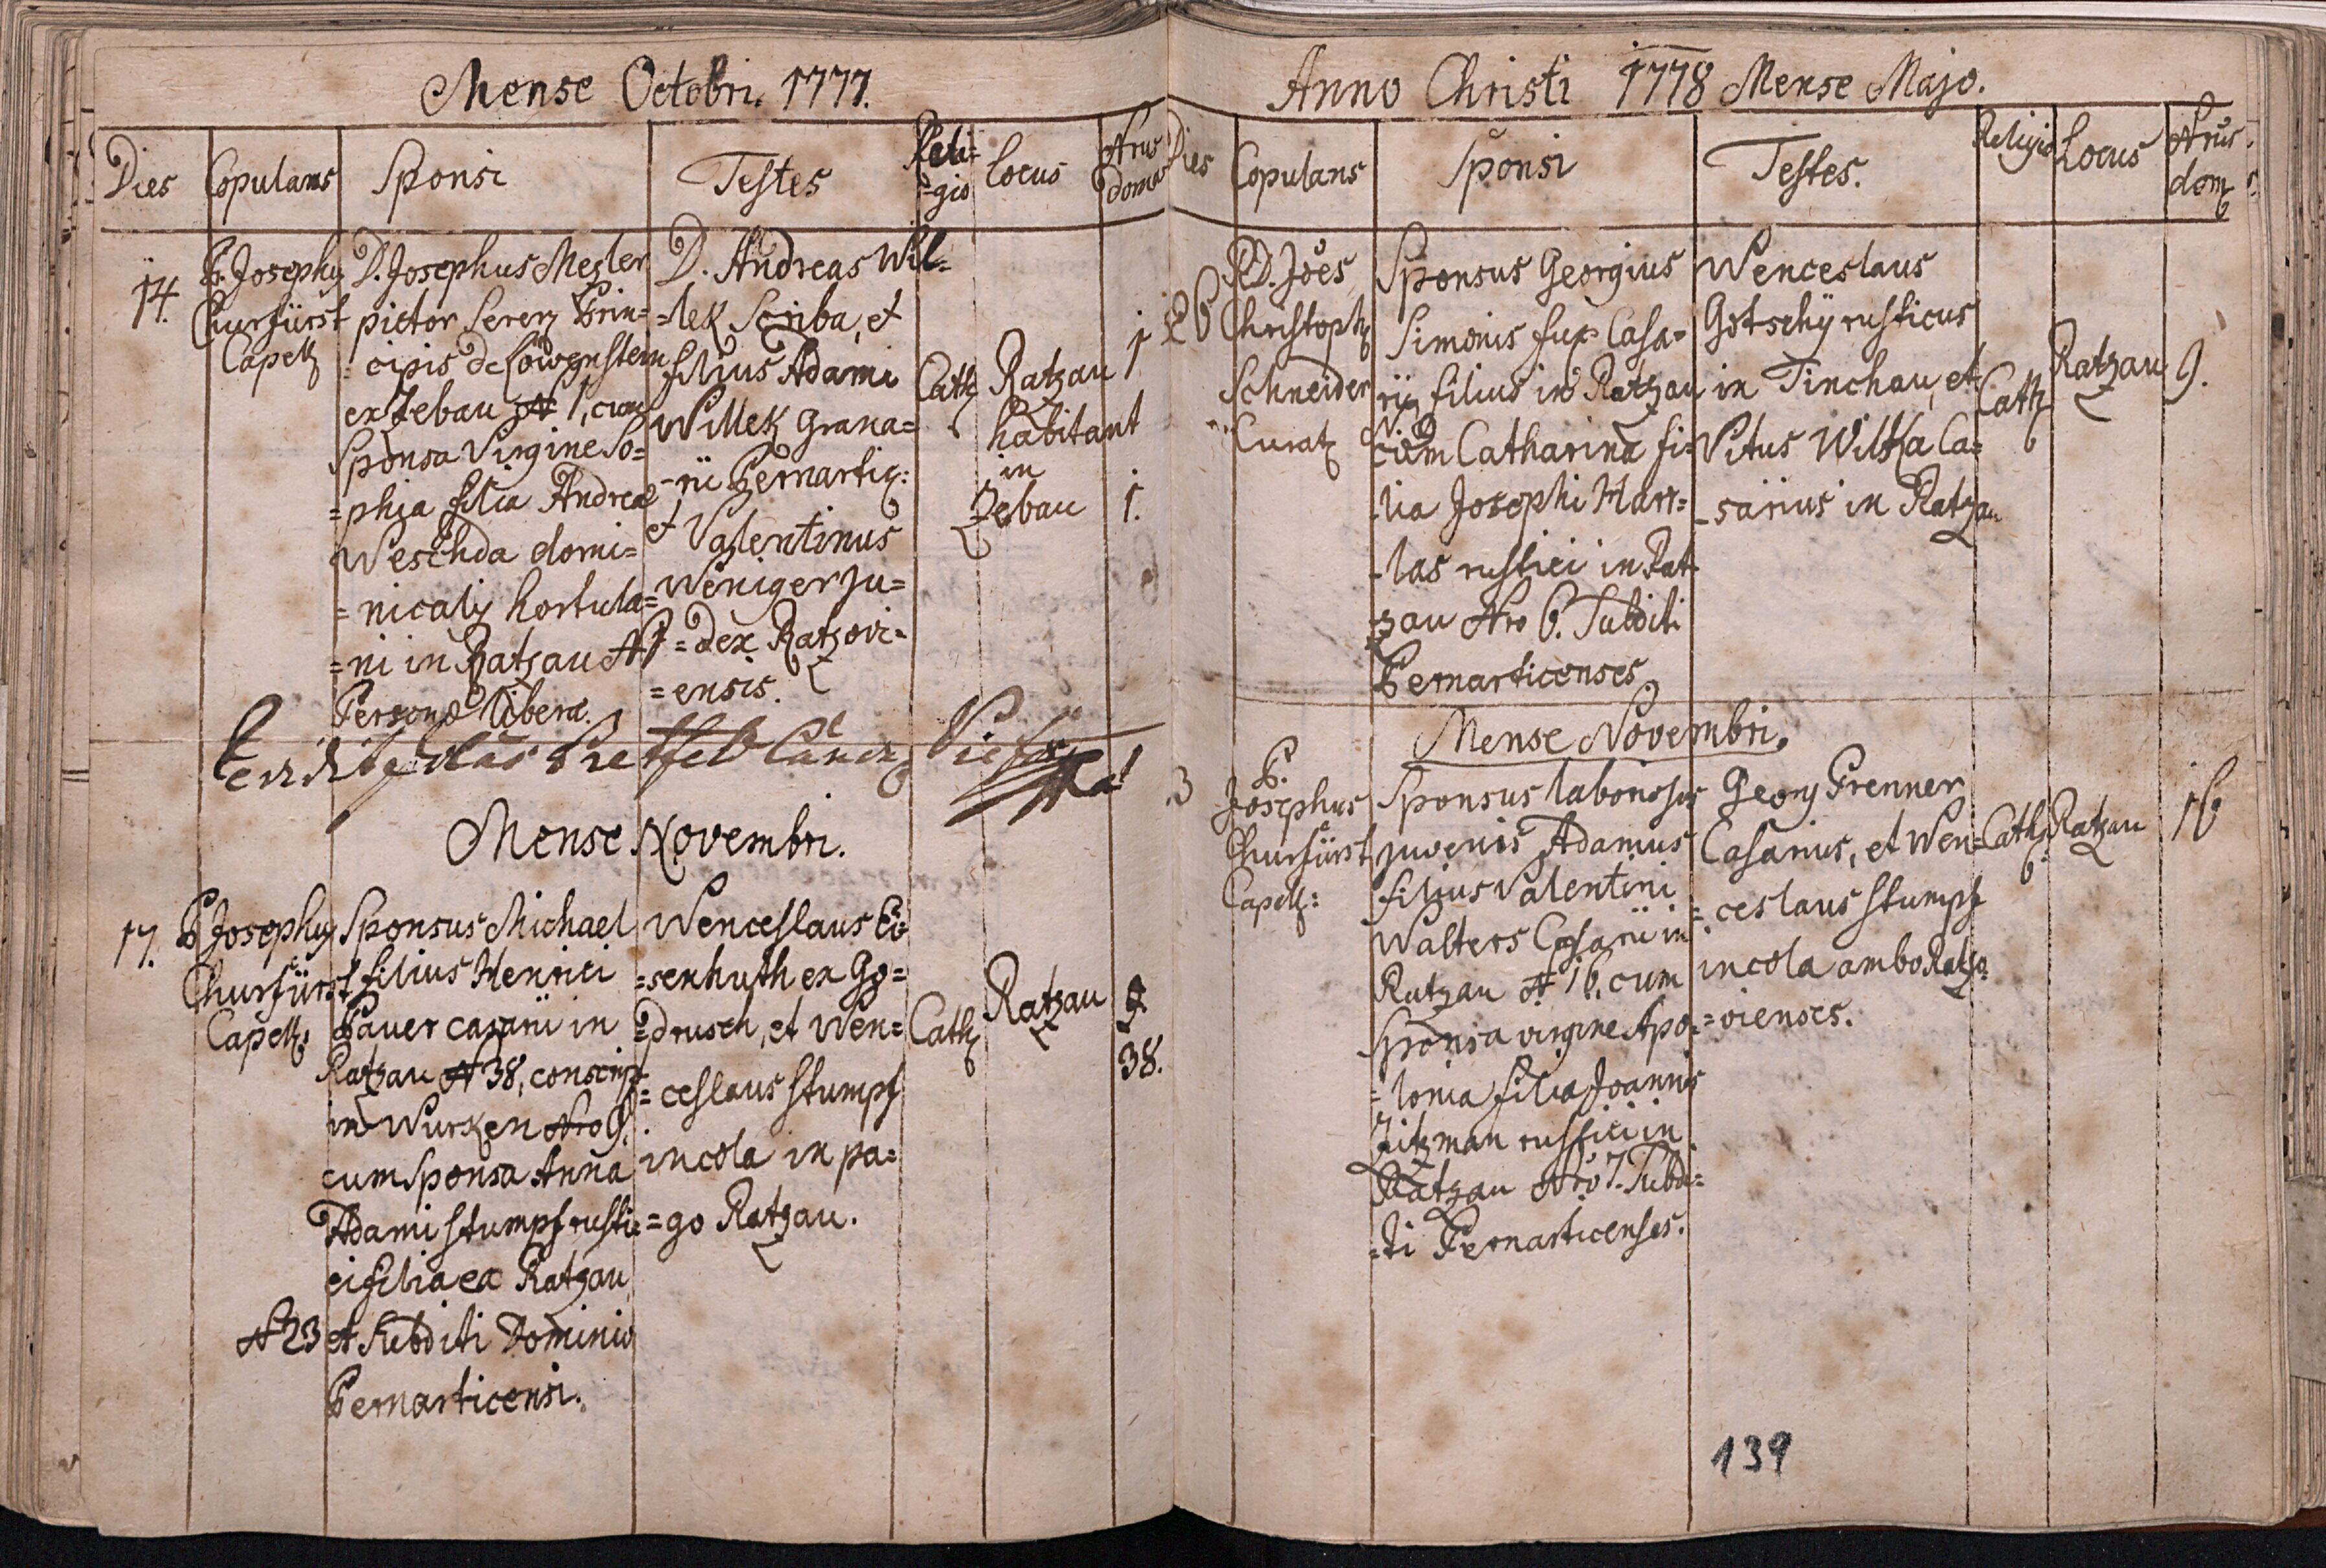 Mense Octobri. 1777.
Dies Copulans Sponsi Testes Reli=
=gio Locus Nrus
domus
14. P. Josephy
Churfürst
Capell
D. Josephus Mesler
pictor Seren Prin=
=cipis de Löwenstein
ex Zebau N 1, cum
Sponsa Virgine So=
=phia filia Andreæ
Weschda domi=
=nicalis hortula=
=ni in Ratzau N 1
Personæ liberæ.
D. Andreas Wil=
=lek Scriba, et
filius Adami
Willek grana=
=rii Pernartic:
et Valentinus
Weniger ju=
=dex Ratzovi=
=ensis.
Cath
Ratzau 1
habitant
in
Zebau 1.
Mense Novembri.
17. P Josephy
Churfürst
Capell
Sponsus Michael
filius Henrici
Pauer casarii in
Ratzau N 38, conscript
in Wurken Nro 9.
cum Sponsa Anna
Adami Stumpf rusti=
ci filia ex Ratzau
N 23 et Subditi Dominio
Pernarticensi.
Wenceslaus Ei=
=senhuth ex Go=
=drusch, et Wen=
=ceslaus Stumpf
incola in pa=
=go Ratzau.
Cath
Ratzau 9
38.
Anno Christi 1778 Mense Majo.
Dies Copulans Sponsi Testes. Religio Locus Nrus
dom
26 RD. Joes
Christoph
Schneider
Curat
Sponsus Georgius
Simonis Fux Casa=
rii filius in Ratzau
N. 9
cum Catharina fi=
=lia Josephi Harr=
=las rustici in Rat=
zau Nro 6. Subditi
Pernarticenses
Wenceslaus
Gotschÿ rusticus
in Tinchau, et
Vitus Wilka Ca=
=sarius in Ratzau
Cath
Ratzau 9.
Mense Novembri.
3 P.
Josephus
Churfürst
Capell:
Sponsus laboriosus
juvenis Adamus
filius Valentini
Walters Casarii in
Ratzau N 16, cum
Sponsa virgine Apo=
=lonia filia Joannis
Zitzman rustici in
Ratzau Nro 7. Subdi=
=ti Pernarticenses.
Georg Prenner
Casarius, et Wen=
=ceslaus Stumpf
incola ambo Ratzo=
=vienses.
Cath
Ratzau 16
139